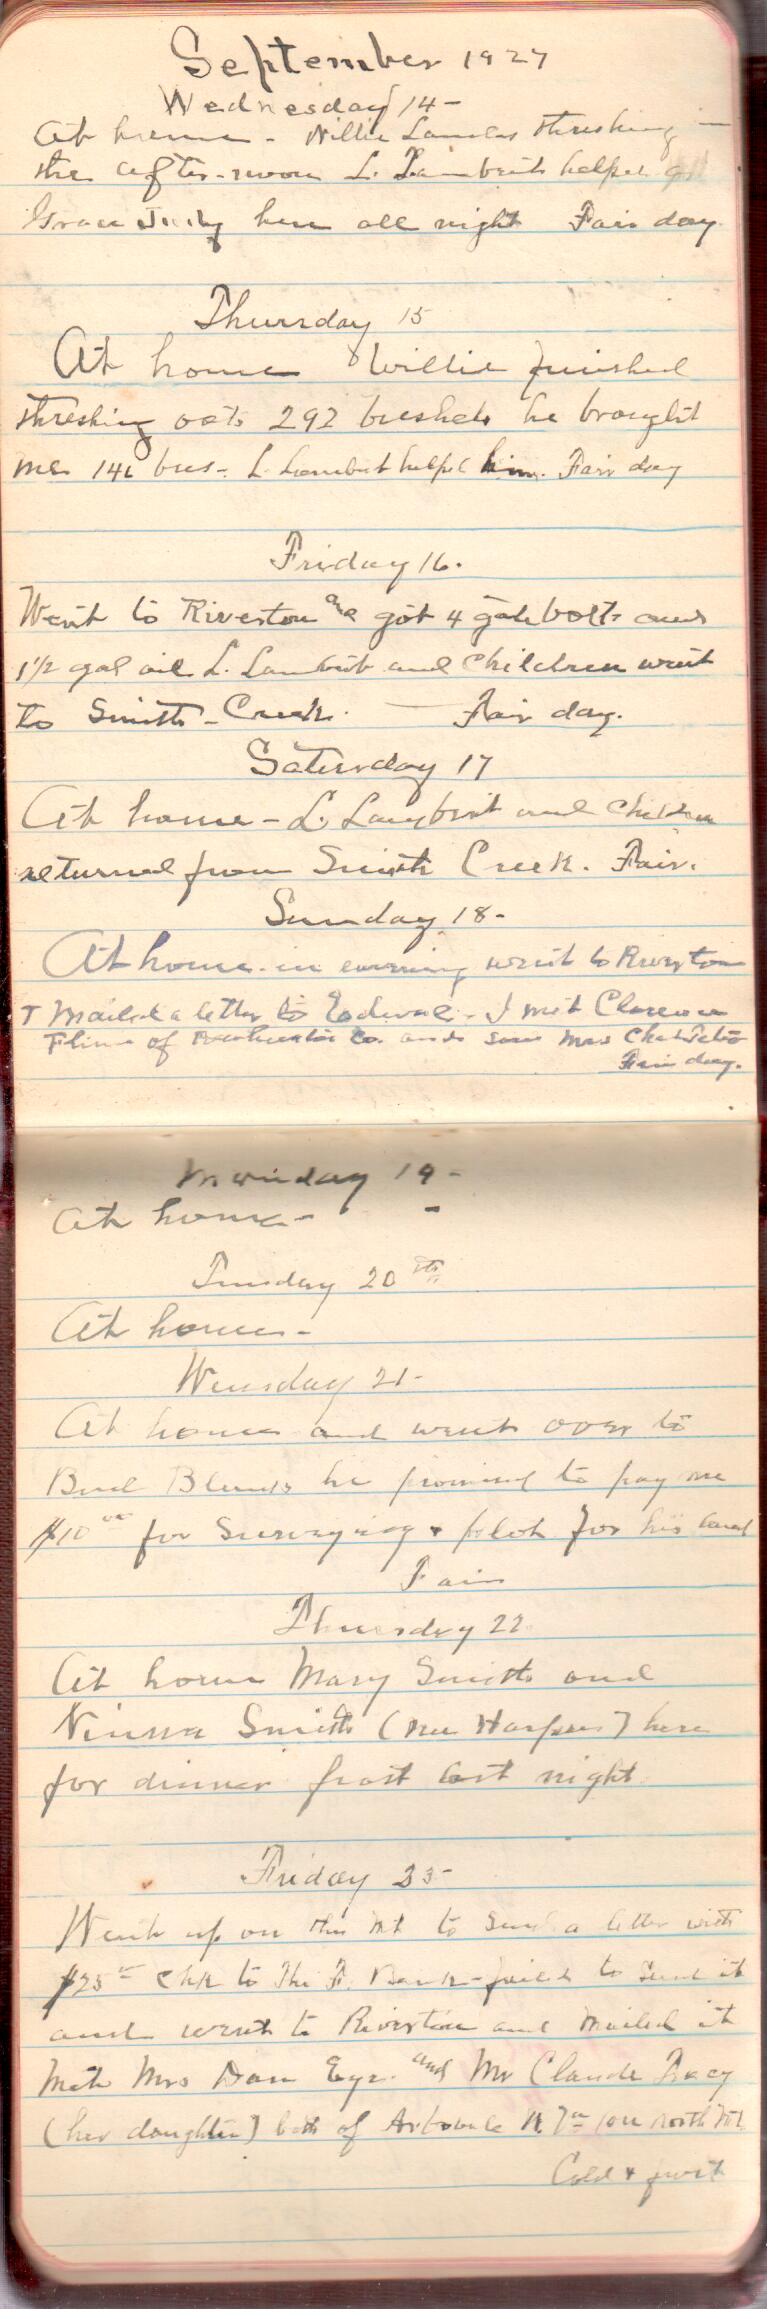 September 1927
Wednesday 14-
At home - Willie threshing -
the after-noon L. Lambert helped
Grace Judy here all night Fair day
Thursday 15
At home Willie finished
threshing oats 292 bushels he brought
me 141 bus- L. Lambert helpd him. Fair day
Friday 16.
Went to Riverton and got 4 gate bolts and
1 1/2 gal oil L. Lambert and children went
to Smith-Creek. — Fair day.
Saturday 17
At home - L. Lambert and children
returned from Smith Creek. Fair.
Sunday 18-
At home in evening went to Riverton
& Mailed a letter to - I met Clarence
of Co. and saw Mrs
Fair day.
Monday 19-
At home- -
Tuesday 20th
At home-
Wensday 21-
At home and went over to
Bud he promised to pay me
$10 for Surveying & plot for his land
Fair
Thursday 22
At home Mary Smith and
Smith (nee Harper) here
for dinner frost last night
Friday 23-
Went up on the Mt to Send a letter with
$25 chk to The F. Bank-failed to Send it
and went to Riverton and mailed it
Met Mrs Dan and Mr Claude Tracy
(her daughter) both of Arbovale on North Mt.
Cold & frost